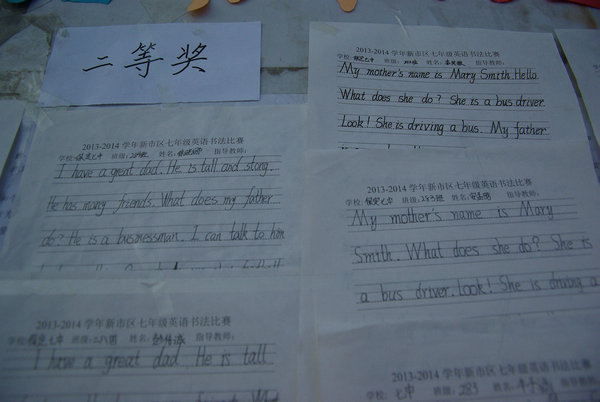 二等奖
2013-2014 学年新市区七年级英语书法比赛
学校: 保定七中 班级: 姓名: 指导教师:
I have a great dad. He is tall and stong.
He has many friends. What does my father
do? He is a businessman. I can talk to him
2013-2014 学年新市区七年级英语书法比赛
学校: 保定七中 班级: 姓名: 指导教师:
I have a great dad. He is tall
2013-2014 学年新市区七年级英语书法比赛
学校: 保定七中 班级: 姓名: 指导教师:
My mother's name is Mary Smith Hello.
What does she do? She is a bus driver.
Look! She is driving a bus. My father
2013-2014 学年新市区七年级英语书法比赛
学校: 保定七中 班级: 283班 姓名: 指导教师:
My mother's name is Mary
Smith. What does she do? She is
a bus driver. Look! She is driving a
2013-2014 学年新市区七年级英语书法比赛
学校: 七中 班级: 283 姓名: